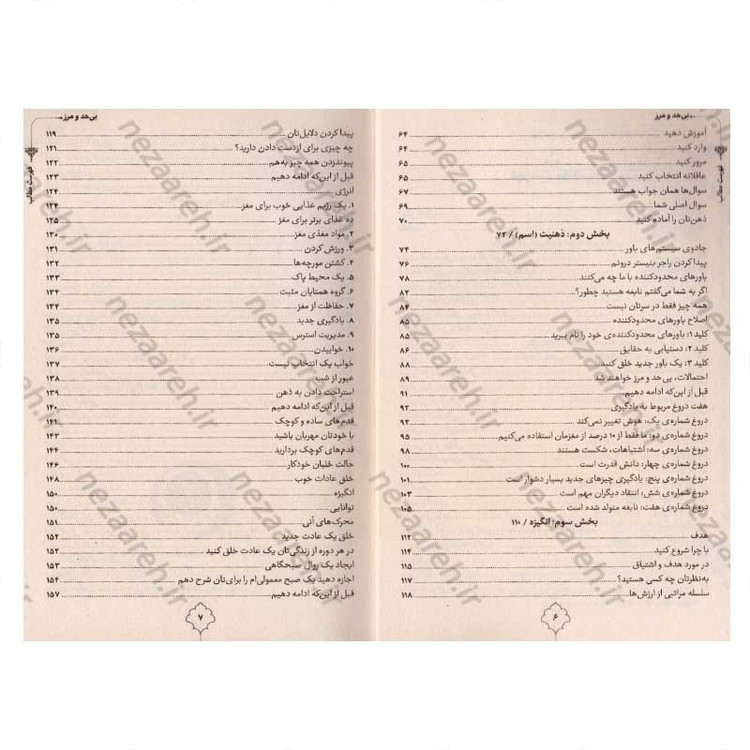 ...بی‌حد و مرز
فهرست مطالب
آموزش دهید ۶۴
وارد کنید ۶۴
مرور کنید ۶۵
عاقلانه انتخاب کنید ۶۵
سوال‌ها همان جواب هستند ۶۷
سوال اصلی شما ۶۹
ذهن‌تان را آماده کنید ۷۰
بخش دوم: ذهنیت (اسم) / ۷۲
جادوی سیستم‌های باور ۷۴
پیدا کردن راجر بنیستر درونم ۷۶
باورهای محدودکننده با ما چه می‌کنند ۷۸
اگر به شما می‌گفتم نابغه هستید چطور؟ ۸۲
همه چیز فقط در سرتان نیست ۸۴
اصلاح باورهای محدودکننده ۸۵
کلید ۱: باورهای محدودکننده‌ی خود را نام ببرید ۸۵
کلید ۲: دستیابی به حقایق ۸۶
کلید ۳: یک باور جدید خلق کنید ۸۸
احتمالات، بی‌حد و مرز خواهند شد ۸۹
قبل از این‌که ادامه دهیم ۹۱
هفت دروغ مربوط به یادگیری ۹۲
دروغ شماره‌ی یک: هوش تغییر نمی‌کند ۹۳
دروغ شماره‌ی دو: ما فقط از ۱۰ درصد از مغزمان استفاده می‌کنیم ۹۵
دروغ شماره‌ی سه: اشتباهات، شکست هستند ۹۸
دروغ شماره‌ی چهار: دانش قدرت است ۱۰۰
دروغ شماره‌ی پنج: یادگیری چیزهای جدید بسیار دشوار است ۱۰۱
دروغ شماره‌ی شش: انتقاد دیگران مهم است ۱۰۳
دروغ شماره‌ی هفت: نابغه متولد شده است ۱۰۵
بخش سوم: انگیزه / ۱۱۰
هدف ۱۱۲
با چرا شروع کنید ۱۱۴
در مورد هدف و اشتیاق ۱۱۵
به‌نظرتان چه کسی هستید؟ ۱۱۷
سلسله مراتبی از ارزش‌ها ۱۱۸
۶
بی‌حد و مرز...
فهرست مطالب
پیدا کردن دلایل‌تان ۱۱۹
چه چیزی برای ازدست دادن دارید؟ ۱۲۱
پیوندزدن همه چیز به‌هم ۱۲۲
قبل از این‌که ادامه دهیم ۱۲۳
انرژی ۱۲۴
۱. یک رژیم غذایی خوب برای مغز ۱۲۴
ده غذای برتر برای مغز ۱۲۵
۲. مواد مغذی مغز ۱۳۰
۳. ورزش کردن ۱۳۱
۴. کشتن مورچه‌ها ۱۳۲
۵. یک محیط پاک ۱۳۳
۶. گروه همتایان مثبت ۱۳۴
۷. حفاظت از مغز ۱۳۴
۸. یادگیری جدید ۱۳۵
۹. مدیریت استرس ۱۳۵
۱۰. خوابیدن ۱۳۶
خواب یک انتخاب نیست ۱۳۷
عبور از شب ۱۳۸
استراحت دادن به ذهن ۱۳۹
قبل از این‌که ادامه دهیم ۱۴۰
قدم‌های ساده و کوچک ۱۴۱
با خودتان مهربان باشید ۱۴۳
قدم‌های کوچک بردارید ۱۴۴
حالت خلبان خودکار ۱۴۶
خلق عادات خوب ۱۴۸
انگیزه ۱۵۰
توانایی ۱۵۰
محرک‌های آنی ۱۵۱
خلق یک عادت جدید ۱۵۲
در هر دوره از زندگی‌تان یک عادت خلق کنید ۱۵۲
ایجاد یک روال صبحگاهی ۱۵۳
اجازه دهید یک صبح معمولی‌ام را برای‌تان شرح دهم ۱۵۴
قبل از این‌که ادامه دهیم ۱۵۷
۷
nezaareh.ir